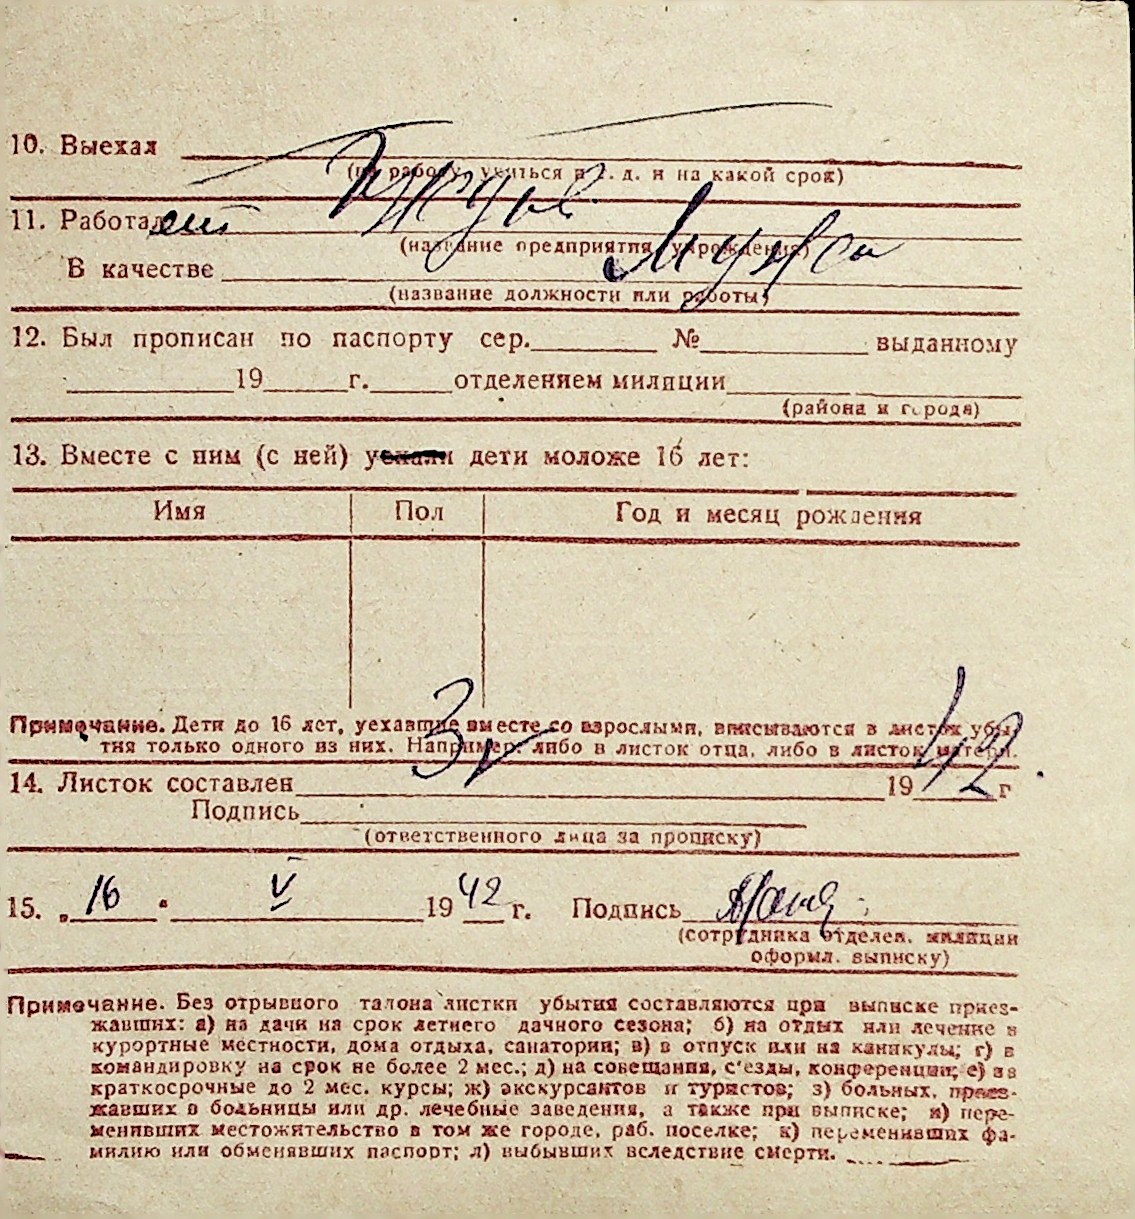 10. Выехал
(на работу, учиться и т. д. и на какой срок)
11. Работал
(название предприятия, учреждения)
В качестве
(название должности или работы)
12. Был прописан по паспорту сер. № выданному
19 г. отделением милиции
(района и города)
13. Вместе с ним (с ней) уехали дети моложе 16 лет:
Имя Пол Год и месяц рождения
Примечание. Дети до 16 лет, уехавшие вместе со взрослыми, вписываются в листок убы-
тия только одного из них. Например: либо в листок отца, либо в листок матери.
14. Листок составлен 3/V 1942 г
Подпись
(ответственного лица за прописку)
15. „16" V 1942 г. Подпись
(сотрудника отделен. милиции
оформл. выписку)
Примечание. Без отрывного талона листки убытия составляются при выписке приез-
жавших: а) на дачи на срок летнего дачного сезона; б) на отдых или лечение в
курортные местности, дома отдыха, санатории; в) в отпуск или на каникулы; г) в
командировку на срок не более 2 мес.; д) на совещания, с'езды, конференции; е) на
краткосрочные до 2 мес. курсы; ж) экскурсантов и туристов; з) больных, приез-
жавших в больницы или др. лечебные заведения, а также при выписке; и) пере-
менивших местожительство в том же городе, раб. поселке; к) переменивших фа-
милию или обменявших паспорт; л) выбывших вследствие смерти.